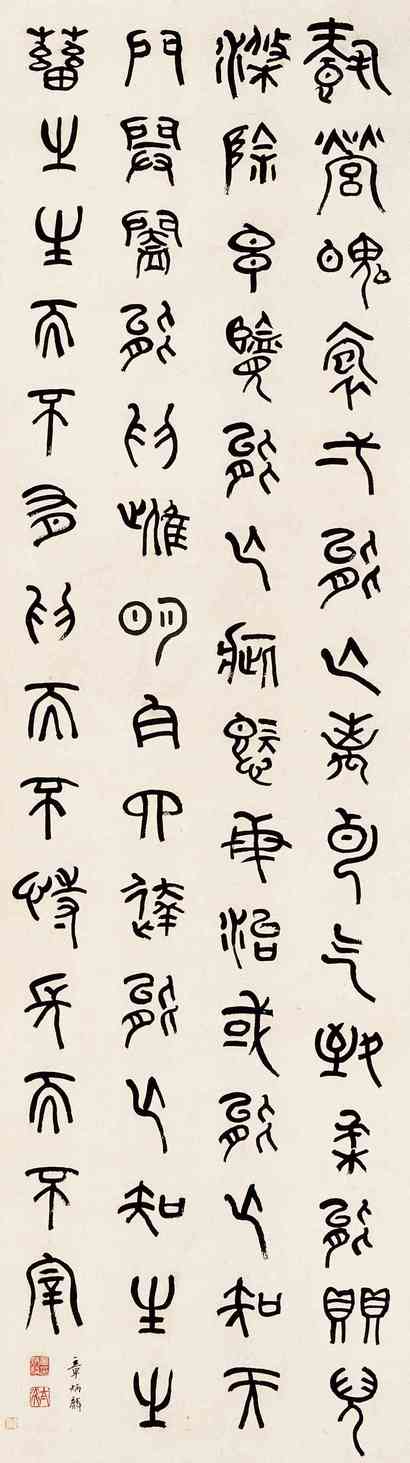 載營魄袌弌能亡離專气致柔能賏兒
滌除玄覽能亡疵愛民治或能亡知天
門開闔能為雌明白四達能亡知生之
畜之生而不有為而不恃長而不宰
章炳麟